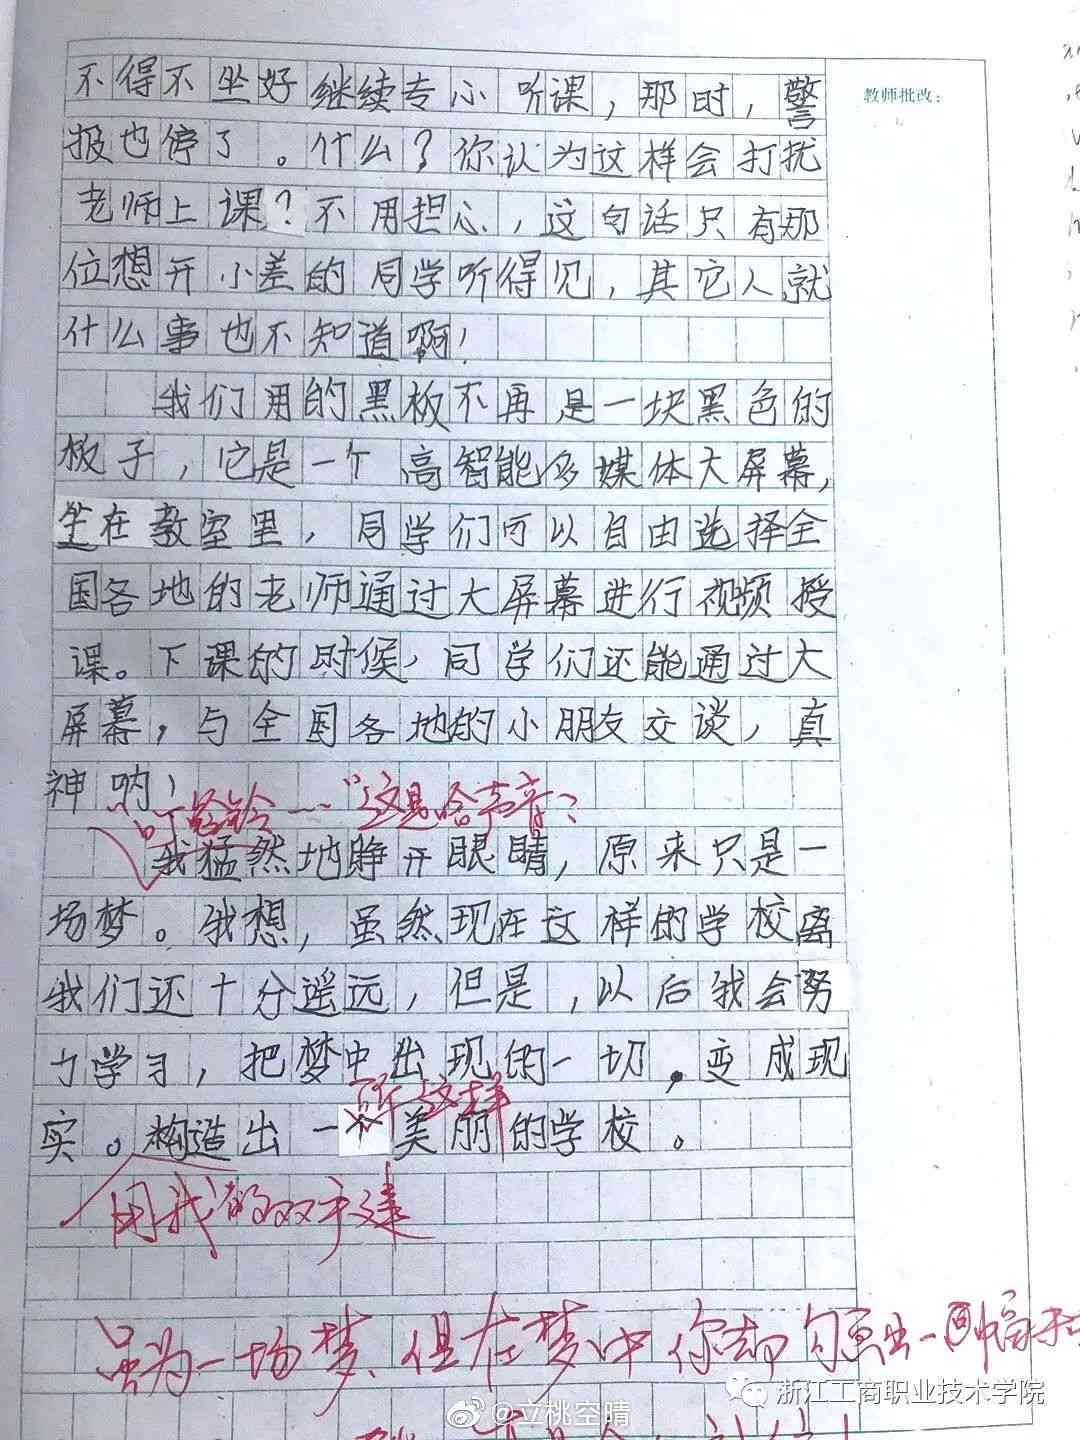 不得不坐好继续专心听课，那时，警
教师批改：
报也停了。什么？你认为这样会打扰
老师上课？不用担心，这句话只有那
位想开小差的同学听得见，其它人就
什么事也不知道啊！
我们用的黑板不再是一块黑色的
板子，它是一个高智能多媒体大屏幕，
坐在教室里，同学们可以自由选择全
国各地的老师通过大屏幕进行视频授
课。下课的时候，同学们还能通过大
屏幕，与全国各地的小朋友交谈，真
神呐！
“叮铃铃……”这是啥声音？
我猛然地睁开眼睛，原来只是一
场梦。我想，虽然现在这样的学校离
我们还十分遥远，但是，以后我会努
力学习，把梦中出现的一切，变成现
所这样
实。构造出一个美丽的学校。
用我的双手建
虽为一场梦，但在梦中你却勾画出一幅
浙江工商职业技术学院
@立桃空晴